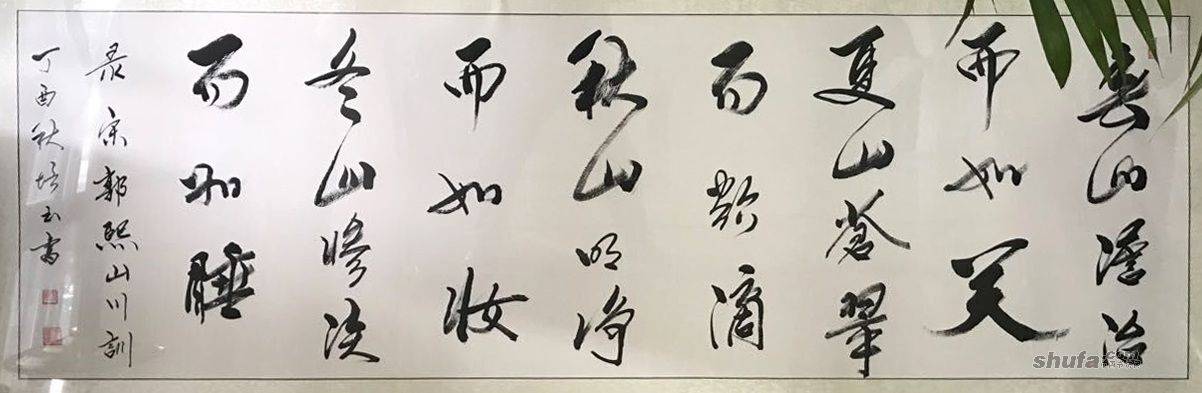 春山澹冶
而如笑
夏山蒼翠
而欲滴
秋山明净
而如妆
冬山惨淡
而如睡
录宋郭熙山川訓
丁酉秋培玉書
shufa